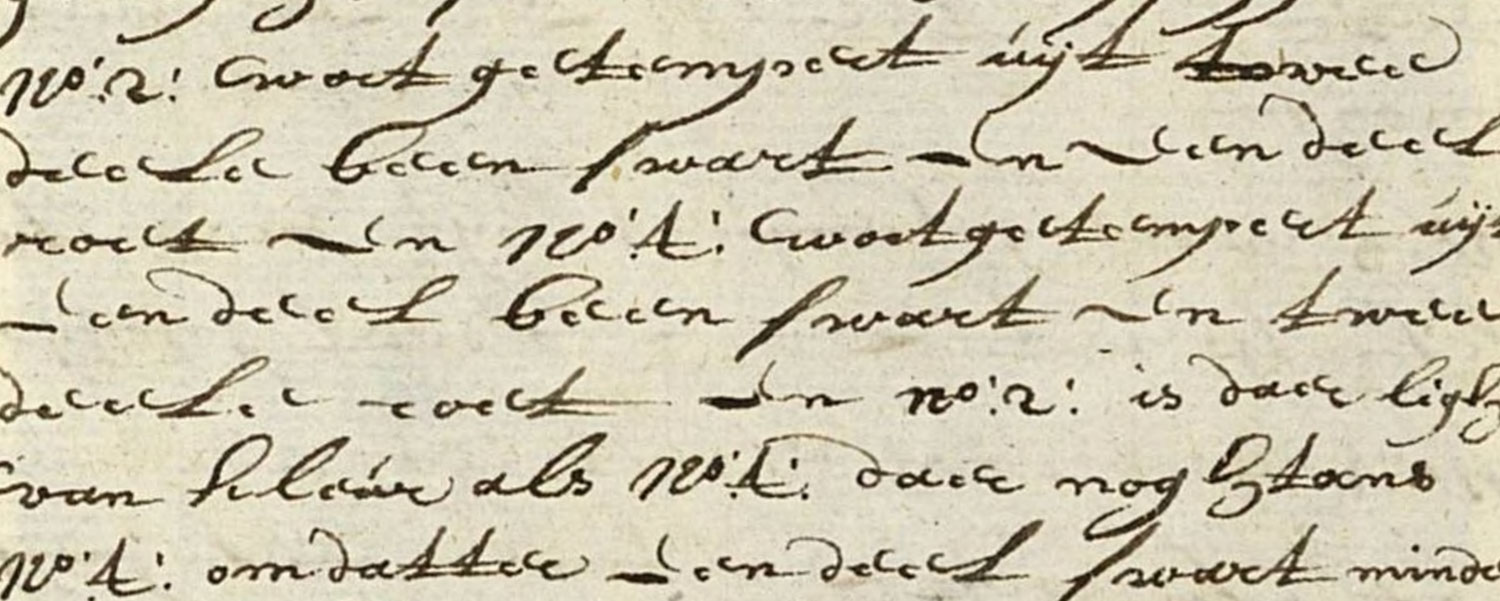 No: 2: Cwoet getempert uijt twee
deele been swart en een deel
roet en No: 4: Cwoet getempert uijt
een deel been swart en twee
deele roet en no: 2: is daer ligh
van kleúr als No: 4: daer noghtans
No: 4: omdatter een deel swart minde